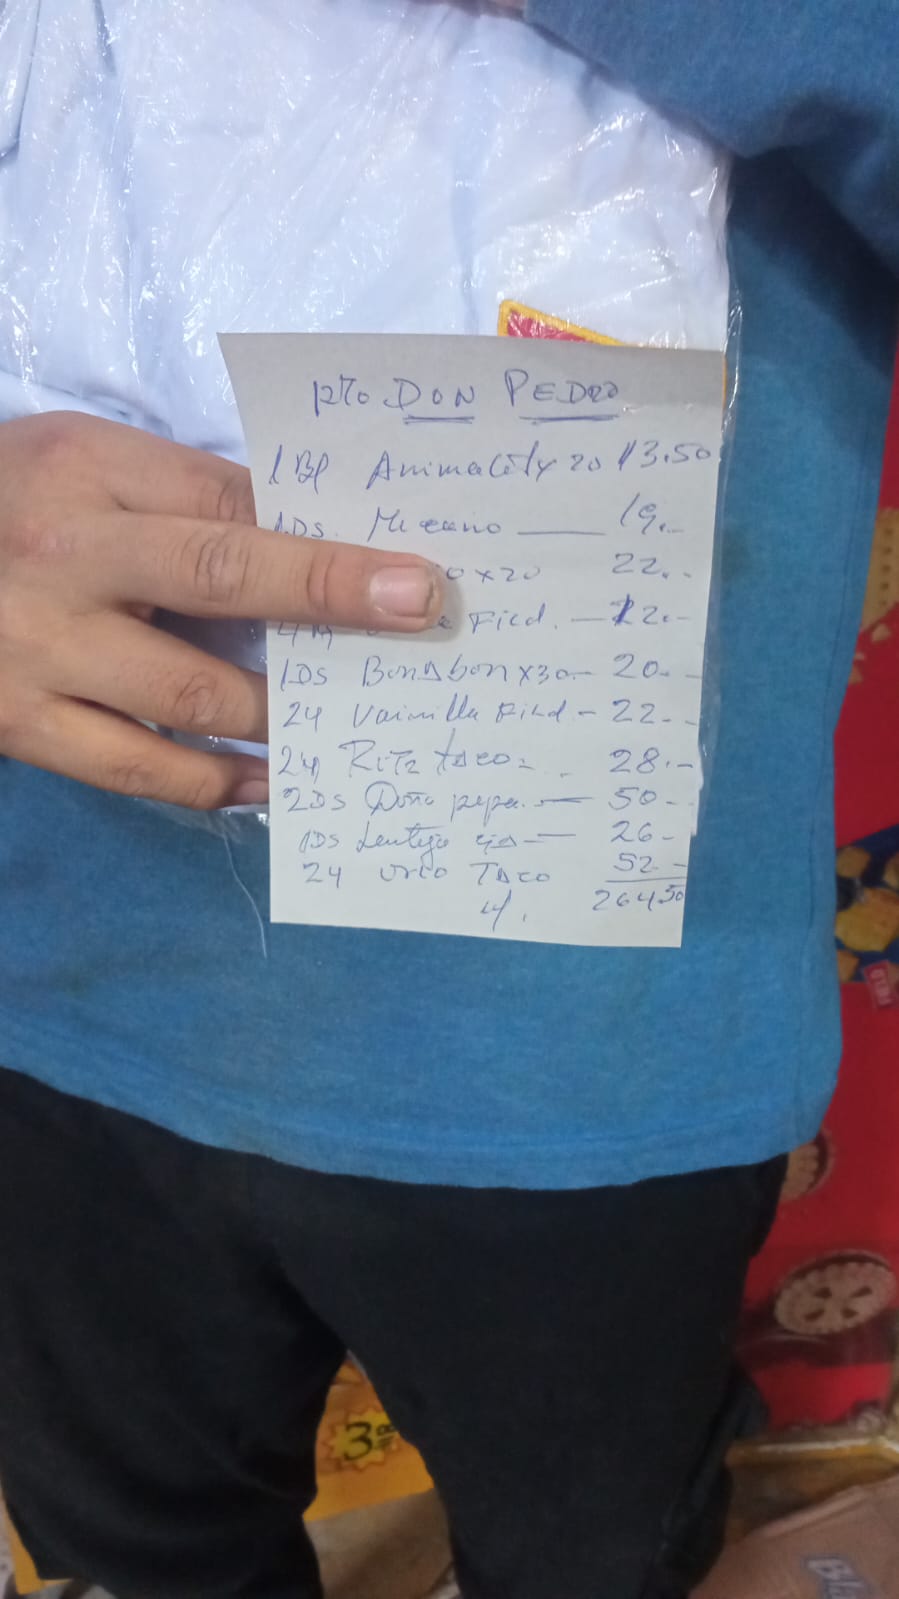 Pto DON PEDRO
1 Bl Animalitx 20 13.50
1DS. Mecano — 19.-
o x20 22.-
Ficd. — 12.-
1DS Bon Abon x30 — 20.-
24 Vainilla Ficd - 22.-
24 Ritz taco - 28.-
2DS Doña pepa. — 50.-
1DS Lenteja — 26.-
24 Taco 52.-
264.50
3